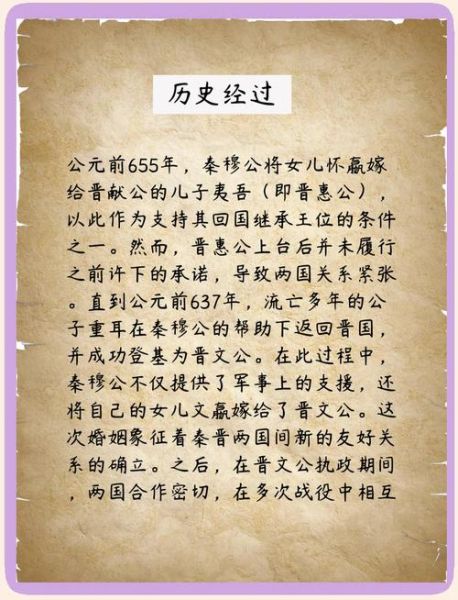 历史经过
公元前655年，秦穆公将女儿怀嬴嫁
给晋献公的儿子夷吾（即晋惠公），
以此作为支持其回国继承王位的条件
之一。然而，晋惠公上台后并未履行
之前许下的承诺，导致两国关系紧张
。直到公元前637年，流亡多年的公
子重耳在秦穆公的帮助下返回晋国，
并成功登基为晋文公。在此过程中，
秦穆公不仅提供了军事上的支援，还
将自己的女儿文嬴嫁给了晋文公。这
次婚姻象征着秦晋两国间新的友好关
系的确立。之后，在晋文公执政期间
，两国合作密切，在多次战役中相互